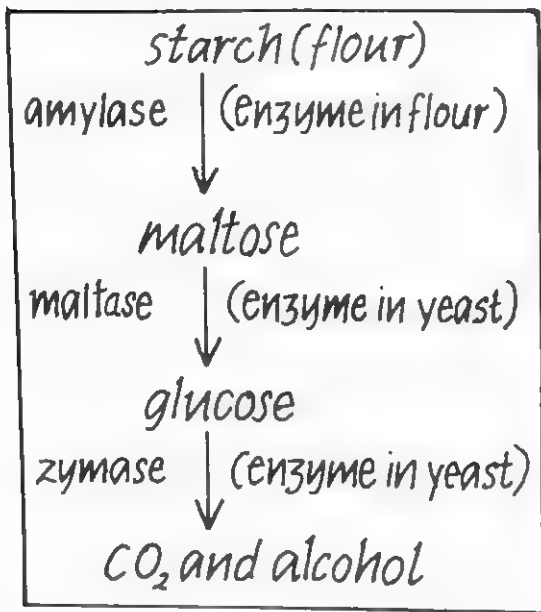 starch (flour)
amylase (enzyme in flour)
maltose
maltase (enzyme in yeast)
glucose
zymase (enzyme in yeast)
CO₂ and alcohol